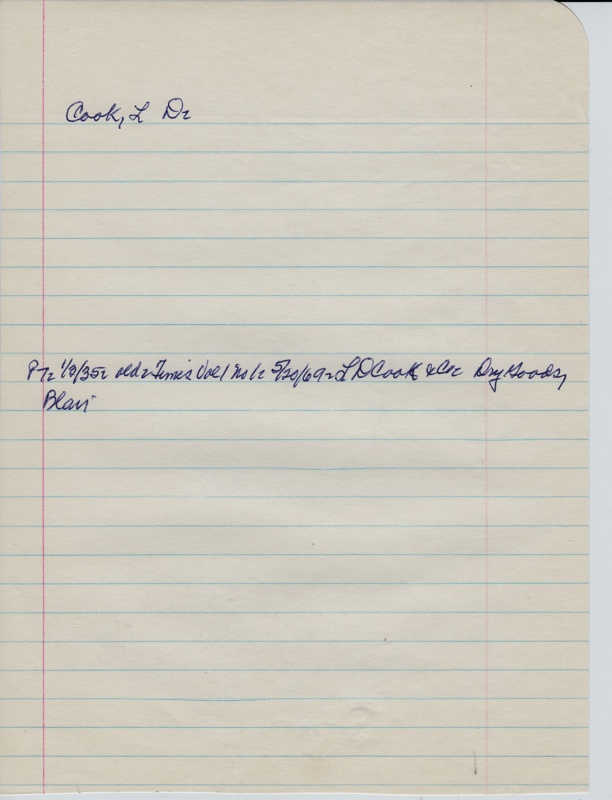 Cook, L D.
PT. 1/3/35. old. Times Vol 1 No 1. 5/20/69. L D Cook & Co. Dry Goods,
Blair